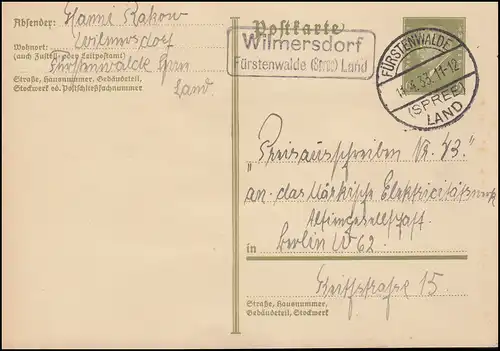 Absender: Hanni Rakow
Wilmersdorf
Wohnort:
(auch Zustell- oder Leitpostamt)
Fürstenwalde Spree
Straße, Hausnummer, Gebäudeteil,
Stockwerk od. Postschließfachnummer
Land.
Postkarte
Wilmersdorf
Fürstenwalde (Spree) Land
FÜRSTENWALDE
33 11-12
(SPREE)
LAND
"Preisausschreiben Nr. 43."
an das Märkische Elektricitätswerk
Aktiengesellschaft
in Berlin W 62
15.
Straße, Hausnummer,
Gebäudeteil, Stockwerk